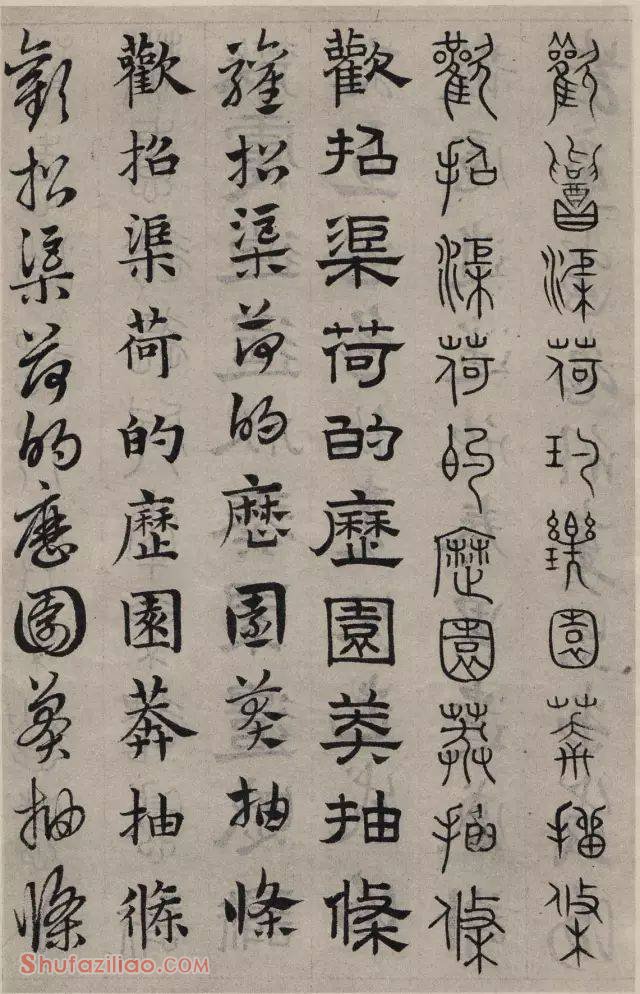 歡渠荷玓瓅園莽抽條
歡招渠荷的歷園莽抽條
歡招渠荷的歷園莽抽條
歡招渠荷的歷園莽抽條
歡招渠荷的歷園莽抽條
歡招渠荷的歷園莽抽條
Shufaziliao.COM